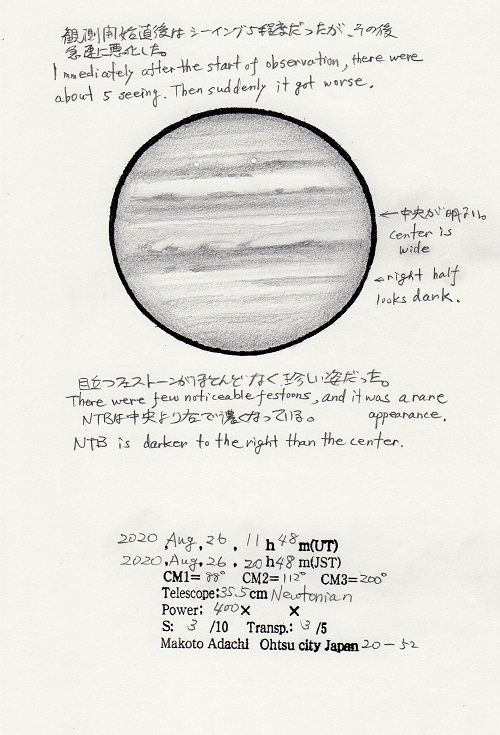 観測開始直後はシーイング5程度だったが、その後
急速に悪化した。
Immediately after the start of observation, there were
about 5 seeing. Then suddenly it got worse.
←中央が明るい。
center is
wide
←right half
looks dark.
目立つフェストーンがほとんどなく珍しい姿だった。
There were few noticeable festoons, and it was a rare
appearance.
NTBは中央より右で濃くなっている。
NTB is darker to the right than the center.
2020, Aug, 26, 11h 48m(UT)
2020, Aug, 26, 20h 48m(JST)
CM1= 88° CM2= 112° CM3= 200°
Telescope: 35.5cm Newtonian
Power: 400× ×
S: 3 /10 Transp.: 3 /5
Makoto Adachi Ohtsu city Japan 20-52